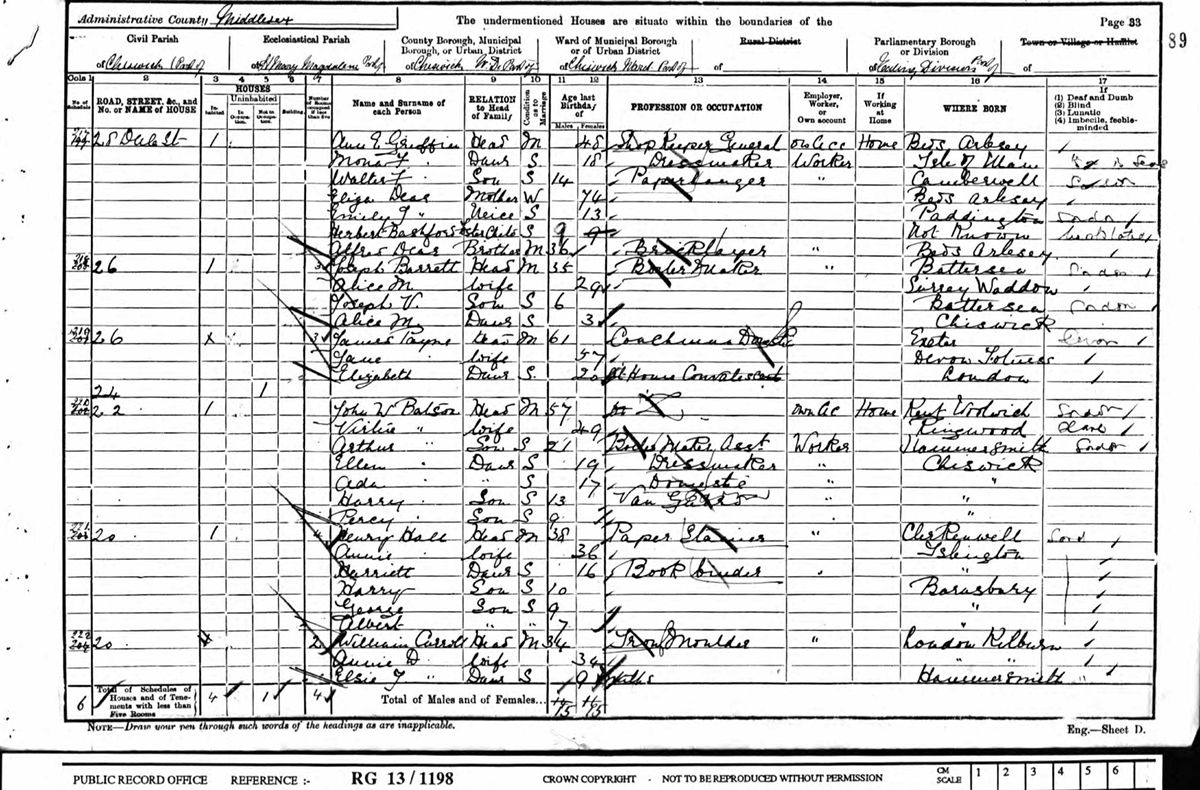 Administrative County Middlesex The undermentioned Houses are situate within the boundaries of the Page 33
89
Civil Parish Ecclesiastical Parish County Borough, Municipal Borough, or Urban District Ward of Municipal Borough or of Urban District Rural District Parliamentary Borough or Division Town or Village or Hamlet
of Chiswick Part of of St Mary Magdalene Part of of Chiswick U.D. Part of of Chiswick Ward Part of of of Ealing Division Part of of
Cols 1 2 3 4 5 6 7 8 9 10 11 12 13 14 15 16 17
No. of Schedule ROAD, STREET, &c., and No. or NAME of HOUSE HOUSES Inhabited Uninhabited In Occupation Not in Occupation Building Number of Rooms occupied if less than five Name and Surname of each Person RELATION to Head of Family Condition as to Marriage Age last Birthday of Males Females PROFESSION OR OCCUPATION Employer, Worker, or Own account If Working at Home WHERE BORN If (1) Deaf and Dumb (2) Blind (3) Lunatic (4) Imbecile, feeble-minded
28 Dale St 1 Ann E Griffin Head M 48 Shop Keeper General Own acc Home Beds Arlesey
Mona F Daur S 18 Dressmaker Worker Isle of Mann
Walter F Son S 14 Paperhanger " Camberwell
Eliza Dear Mother W 74 Beds Arlesey
Emily J " Neice S 13 Paddington London
Herbert Bashford Foster Child S 9 Not Known
Alfred Dear Brother M 36 " Beds Arlesey
26 1 3 Joseph Barrett Head M 35 Boiler Maker " Battersea London
Alice M Wife 29 Surrey Waddon
Joseph V. Son S 6 Battersea London
Alice M Daur S 3 Chiswick
26 x 3 James Payne Head M 61 Coachman Domestic Exeter Devon
Jane Wife 57 Devon Totnes
Elizabeth Daur S. 20 At Home Convalescent London
24 1
22 1 John W Batson Head M 57 Own ac Home Kent Woolwich
" Wife 49 Ringwood
Arthur " Son S 21 Boiler Maker Asst Worker Hammersmith London
Ellen Daur S 19 Dressmaker " Chiswick
Ada " S 17 Domestic " "
Harry Son S 13 Van Guard " "
Percy Son S 9 "
20 1 4 Henry Hall Head M 38 Paper Stainer " Clerkenwell Lond
Annie Wife 36 Islington
Harriett Daur S 16 Book binder "
Harry Son S 10 Barnsbury
George Son S 9 "
Albert " " 7 "
20 2 William Carroll Head M 34 Iron Moulder " London Kilburn
Annie D. Wife 34 " "
Elsie J " Daur S 9 mths Hammersmith "
6 Total of Schedules of Houses and of Tenements with less than Five Rooms 4 1 4 Total of Males and Females... 15 15
NOTE—Draw your pen through such words of the headings as are inapplicable. Eng.—Sheet D.
PUBLIC RECORD OFFICE REFERENCE :- RG 13/1198 CROWN COPYRIGHT - NOT TO BE REPRODUCED WITHOUT PERMISSION CM SCALE 1 2 3 4 5 6